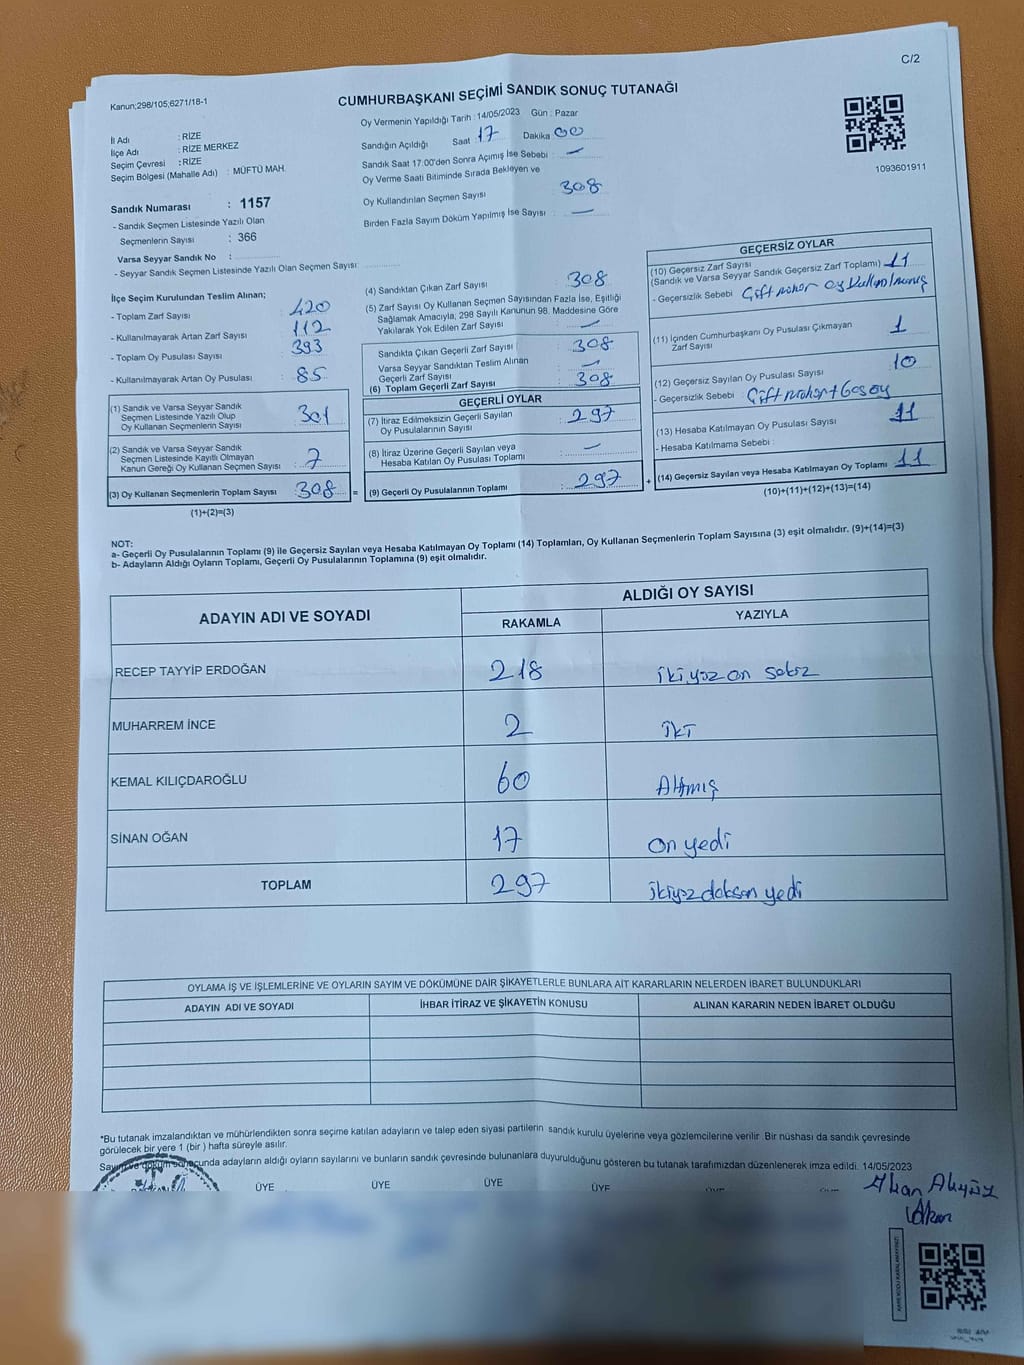 C/2
Kanun;298/105;6271/18-1
CUMHURBAŞKANI SEÇİMİ SANDIK SONUÇ TUTANAĞI
İl Adı : RİZE
İlçe Adı : RİZE MERKEZ
Seçim Çevresi : RİZE
Seçim Bölgesi (Mahalle Adı) : MÜFTÜ MAH.
Sandık Numarası : 1157
- Sandık Seçmen Listesinde Yazılı Olan
Seçmenlerin Sayısı : 366
Varsa Seyyar Sandık No :
- Seyyar Sandık Seçmen Listesinde Yazılı Olan Seçmen Sayısı:
Oy Vermenin Yapıldığı Tarih : 14/05/2023 Gün : Pazar
Sandığın Açıldığı Saat 17 Dakika 00
Sandık Saat 17:00'den Sonra Açımış İse Sebebi : —
Oy Verme Saati Bitiminde Sırada Bekleyen ve
Oy Kullandırılan Seçmen Sayısı 308
Birden Fazla Sayım Döküm Yapılmış İse Sayısı : —
1093601911
İlçe Seçim Kurulundan Teslim Alınan;
- Toplam Zarf Sayısı : 420
- Kullanılmayarak Artan Zarf Sayısı : 112
- Toplam Oy Pusulası Sayısı : 393
- Kullanılmayarak Artan Oy Pusulası : 85
(1) Sandık ve Varsa Seyyar Sandık
Seçmen Listesinde Yazılı Olup
Oy Kullanan Seçmenlerin Sayısı : 301
(2) Sandık ve Varsa Seyyar Sandık
Seçmen Listesinde Kayıtlı Olmayan
Kanun Gereği Oy Kullanan Seçmen Sayısı : 7
(3) Oy Kullanan Seçmenlerin Toplam Sayısı : 308 =
(1)+(2)=(3)
(4) Sandıktan Çıkan Zarf Sayısı : 308
(5) Zarf Sayısı Oy Kullanan Seçmen Sayısından Fazla İse, Eşitliği
Sağlamak Amacıyla; 298 Sayılı Kanunun 98. Maddesine Göre
Yakılarak Yok Edilen Zarf Sayısı : —
Sandıkta Çıkan Geçerli Zarf Sayısı : 308
Varsa Seyyar Sandıktan Teslim Alınan
Geçerli Zarf Sayısı : —
(6) Toplam Geçerli Zarf Sayısı : 308
GEÇERLİ OYLAR
(7) İtiraz Edilmeksizin Geçerli Sayılan
Oy Pusulalarının Sayısı : 297
(8) İtiraz Üzerine Geçerli Sayılan veya
Hesaba Katılan Oy Pusulası Toplamı : —
(9) Geçerli Oy Pusulalarının Toplamı : 297 +
GEÇERSİZ OYLAR
(10) Geçersiz Zarf Sayısı
(Sandık ve Varsa Seyyar Sandık Geçersiz Zarf Toplamı) : 11
- Geçersizlik Sebebi : Çift mühür oy kullanılmış
(11) İçinden Cumhurbaşkanı Oy Pusulası Çıkmayan
Zarf Sayısı : 1
(12) Geçersiz Sayılan Oy Pusulası Sayısı : 10
- Geçersizlik Sebebi : Çift mühür + boş oy
(13) Hesaba Katılmayan Oy Pusulası Sayısı : 11
- Hesaba Katılmama Sebebi :
(14) Geçersiz Sayılan veya Hesaba Katılmayan Oy Toplamı : 11
(10)+(11)+(12)+(13)=(14)
NOT:
a- Geçerli Oy Pusulalarının Toplamı (9) ile Geçersiz Sayılan veya Hesaba Katılmayan Oy Toplamı (14) Toplamları, Oy Kullanan Seçmenlerin Toplam Sayısına (3) eşit olmalıdır. (9)+(14)=(3)
b- Adayların Aldığı Oyların Toplamı, Geçerli Oy Pusulalarının Toplamına (9) eşit olmalıdır.
ADAYIN ADI VE SOYADI ALDIĞI OY SAYISI
RAKAMLA YAZIYLA
RECEP TAYYİP ERDOĞAN 218 ikiyüz on sekiz
MUHARREM İNCE 2 iki
KEMAL KILIÇDAROĞLU 60 Altmış
SİNAN OĞAN 17 on yedi
TOPLAM 297 ikiyüz doksan yedi
OYLAMA İŞ VE İŞLEMLERİNE VE OYLARIN SAYIM VE DÖKÜMÜNE DAİR ŞİKAYETLERLE BUNLARA AİT KARARLARIN NELERDEN İBARET BULUNDUKLARI
ADAYIN ADI VE SOYADI İHBAR İTİRAZ VE ŞİKAYETİN KONUSU ALINAN KARARIN NEDEN İBARET OLDUĞU
*Bu tutanak imzalandıktan ve mühürlendikten sonra seçime katılan adayların ve talep eden siyasi partilerin sandık kurulu üyelerine veya gözlemcilerine verilir. Bir nüshası da sandık çevresinde
görülecek bir yere 1 (bir) hafta süreyle asılır.
Sayım ve döküm sonucunda adayların aldığı oyların sayılarını ve bunların sandık çevresinde bulunanlara duyurulduğunu gösteren bu tutanak tarafımızdan düzenlenerek imza edildi. 14/05/2023
ÜYE ÜYE ÜYE ÜYE